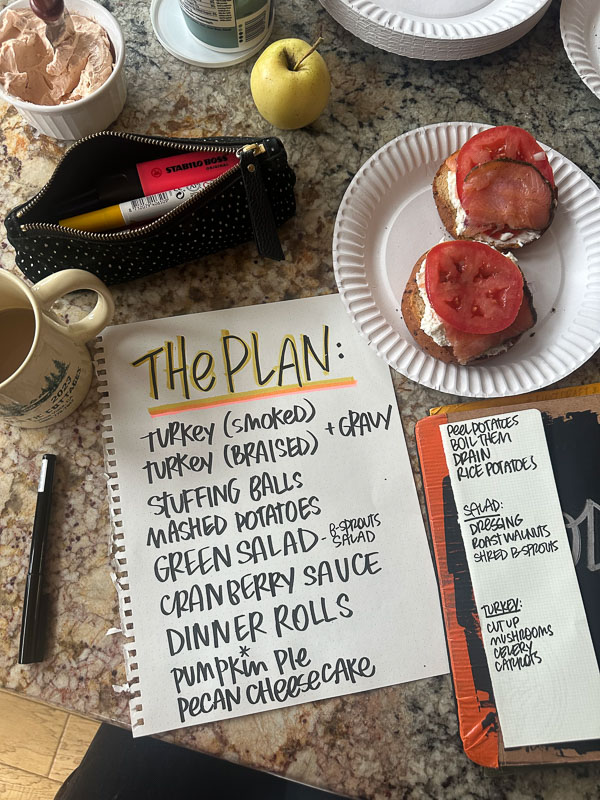 STABILO BOSS
THE PLAN:
TURKEY (SMOKED)
TURKEY (BRAISED) + GRAVY
STUFFING BALLS
MASHED POTATOES
GREEN SALAD - B-SPROUTS SALAD
CRANBERRY SAUCE
DINNER ROLLS
PUMPKIN PIE
*
PECAN CHEESECAKE
PEEL POTATOES
BOIL THEM
DRAIN
RICE POTATOES
SALAD:
DRESSING
ROAST WALNUTS
SHRED B-SPROUTS
TURKEY:
CUT UP
MUSHROOMS
CELERY
CARROTS
2023